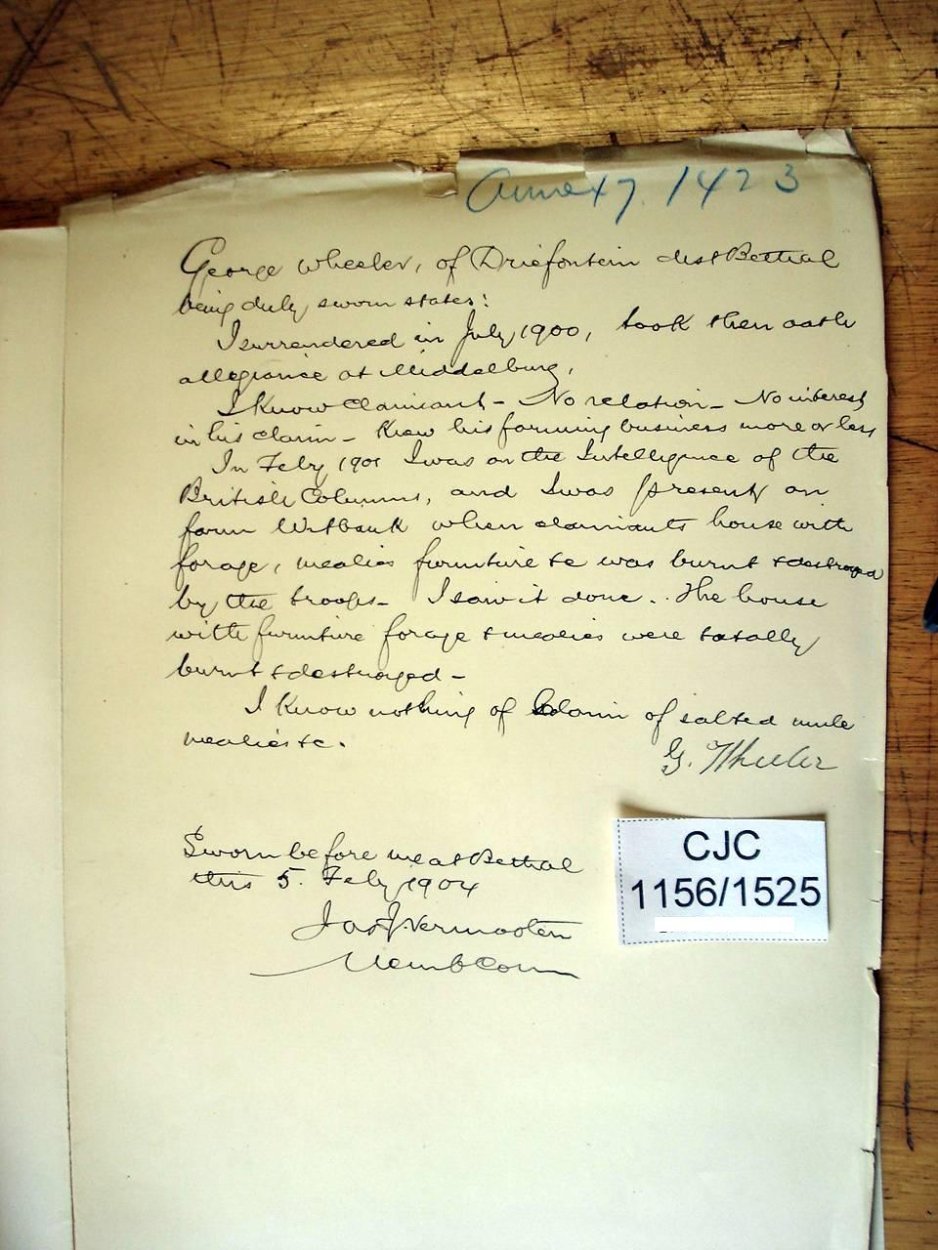 Annex 7. 1423
George Wheeler, of Driefontein dist Bethal
being duly sworn states:
I surrendered in July 1900, took then oath
allegiance at Middelburg.
I know claimant - No relation - No interest
in his claim - Know his farming business more or less
In Feby 1901 I was on the Intelligence of the
British Columns, and I was present on
farm Witbank when claimants house with
forage, mealies furniture &c was burnt & destroyed
by the troops - I saw it done. The house
with furniture forage & mealies were totally
burnt & destroyed -
I know nothing of claim of salted mule
mealies &c.
G. Wheeler
Sworn before me at Bethal
this 5. Feby 1904
Jas J Vermooten
Memb Com
CJC
1156/1525